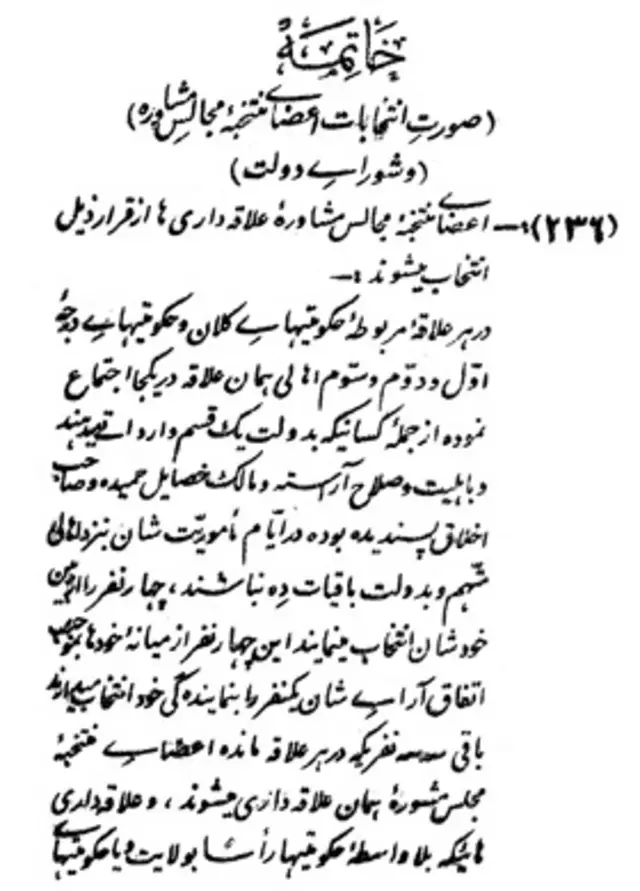 خاتمهٔ
(صورتِ انتخابات اعضای منتخبهٔ مجالسِ مشاوره)
(و شورای دولت)
(۲۳۶):— اعضای منتخبهٔ مجالس مشاورهٔ علاقه داری ها از قرار ذیل
انتخاب میشوند :—
در هر علاقهٔ مربوطهٔ حکومتیهای کلان و حکومتیهای درجهٔ
اوّل و دوّم و سوّم اهالی همان علاقه در یکجا اجتماع
نموده از جملهٔ کسانیکه بدولت یک قسم وارداتی میدهند
و باهلیت و صلاح آراسته و مالک خصایل حمیده و صاحب
اخلاق پسندیده بوده در ایّام مأموریّت شان نزد اهالی
متّهم و بدولت باقیات دِه نباشند، چهار نفر را از بین
خودشان انتخاب مینمایند این چهار نفر از میانهٔ خودها بموجب
اتفاق آرای شان یکنفر را بنماینده گی خود انتخاب میدارند
باقی سه سه نفریکه در هر علاقه مانده اعضای منتخبهٔ
مجلس مشورهٔ همان علاقه داری میشوند، و علاقه داری
هائیکه بلا واسطهٔ حکومتیها رأسًا بولایت و یا حکومتیهای